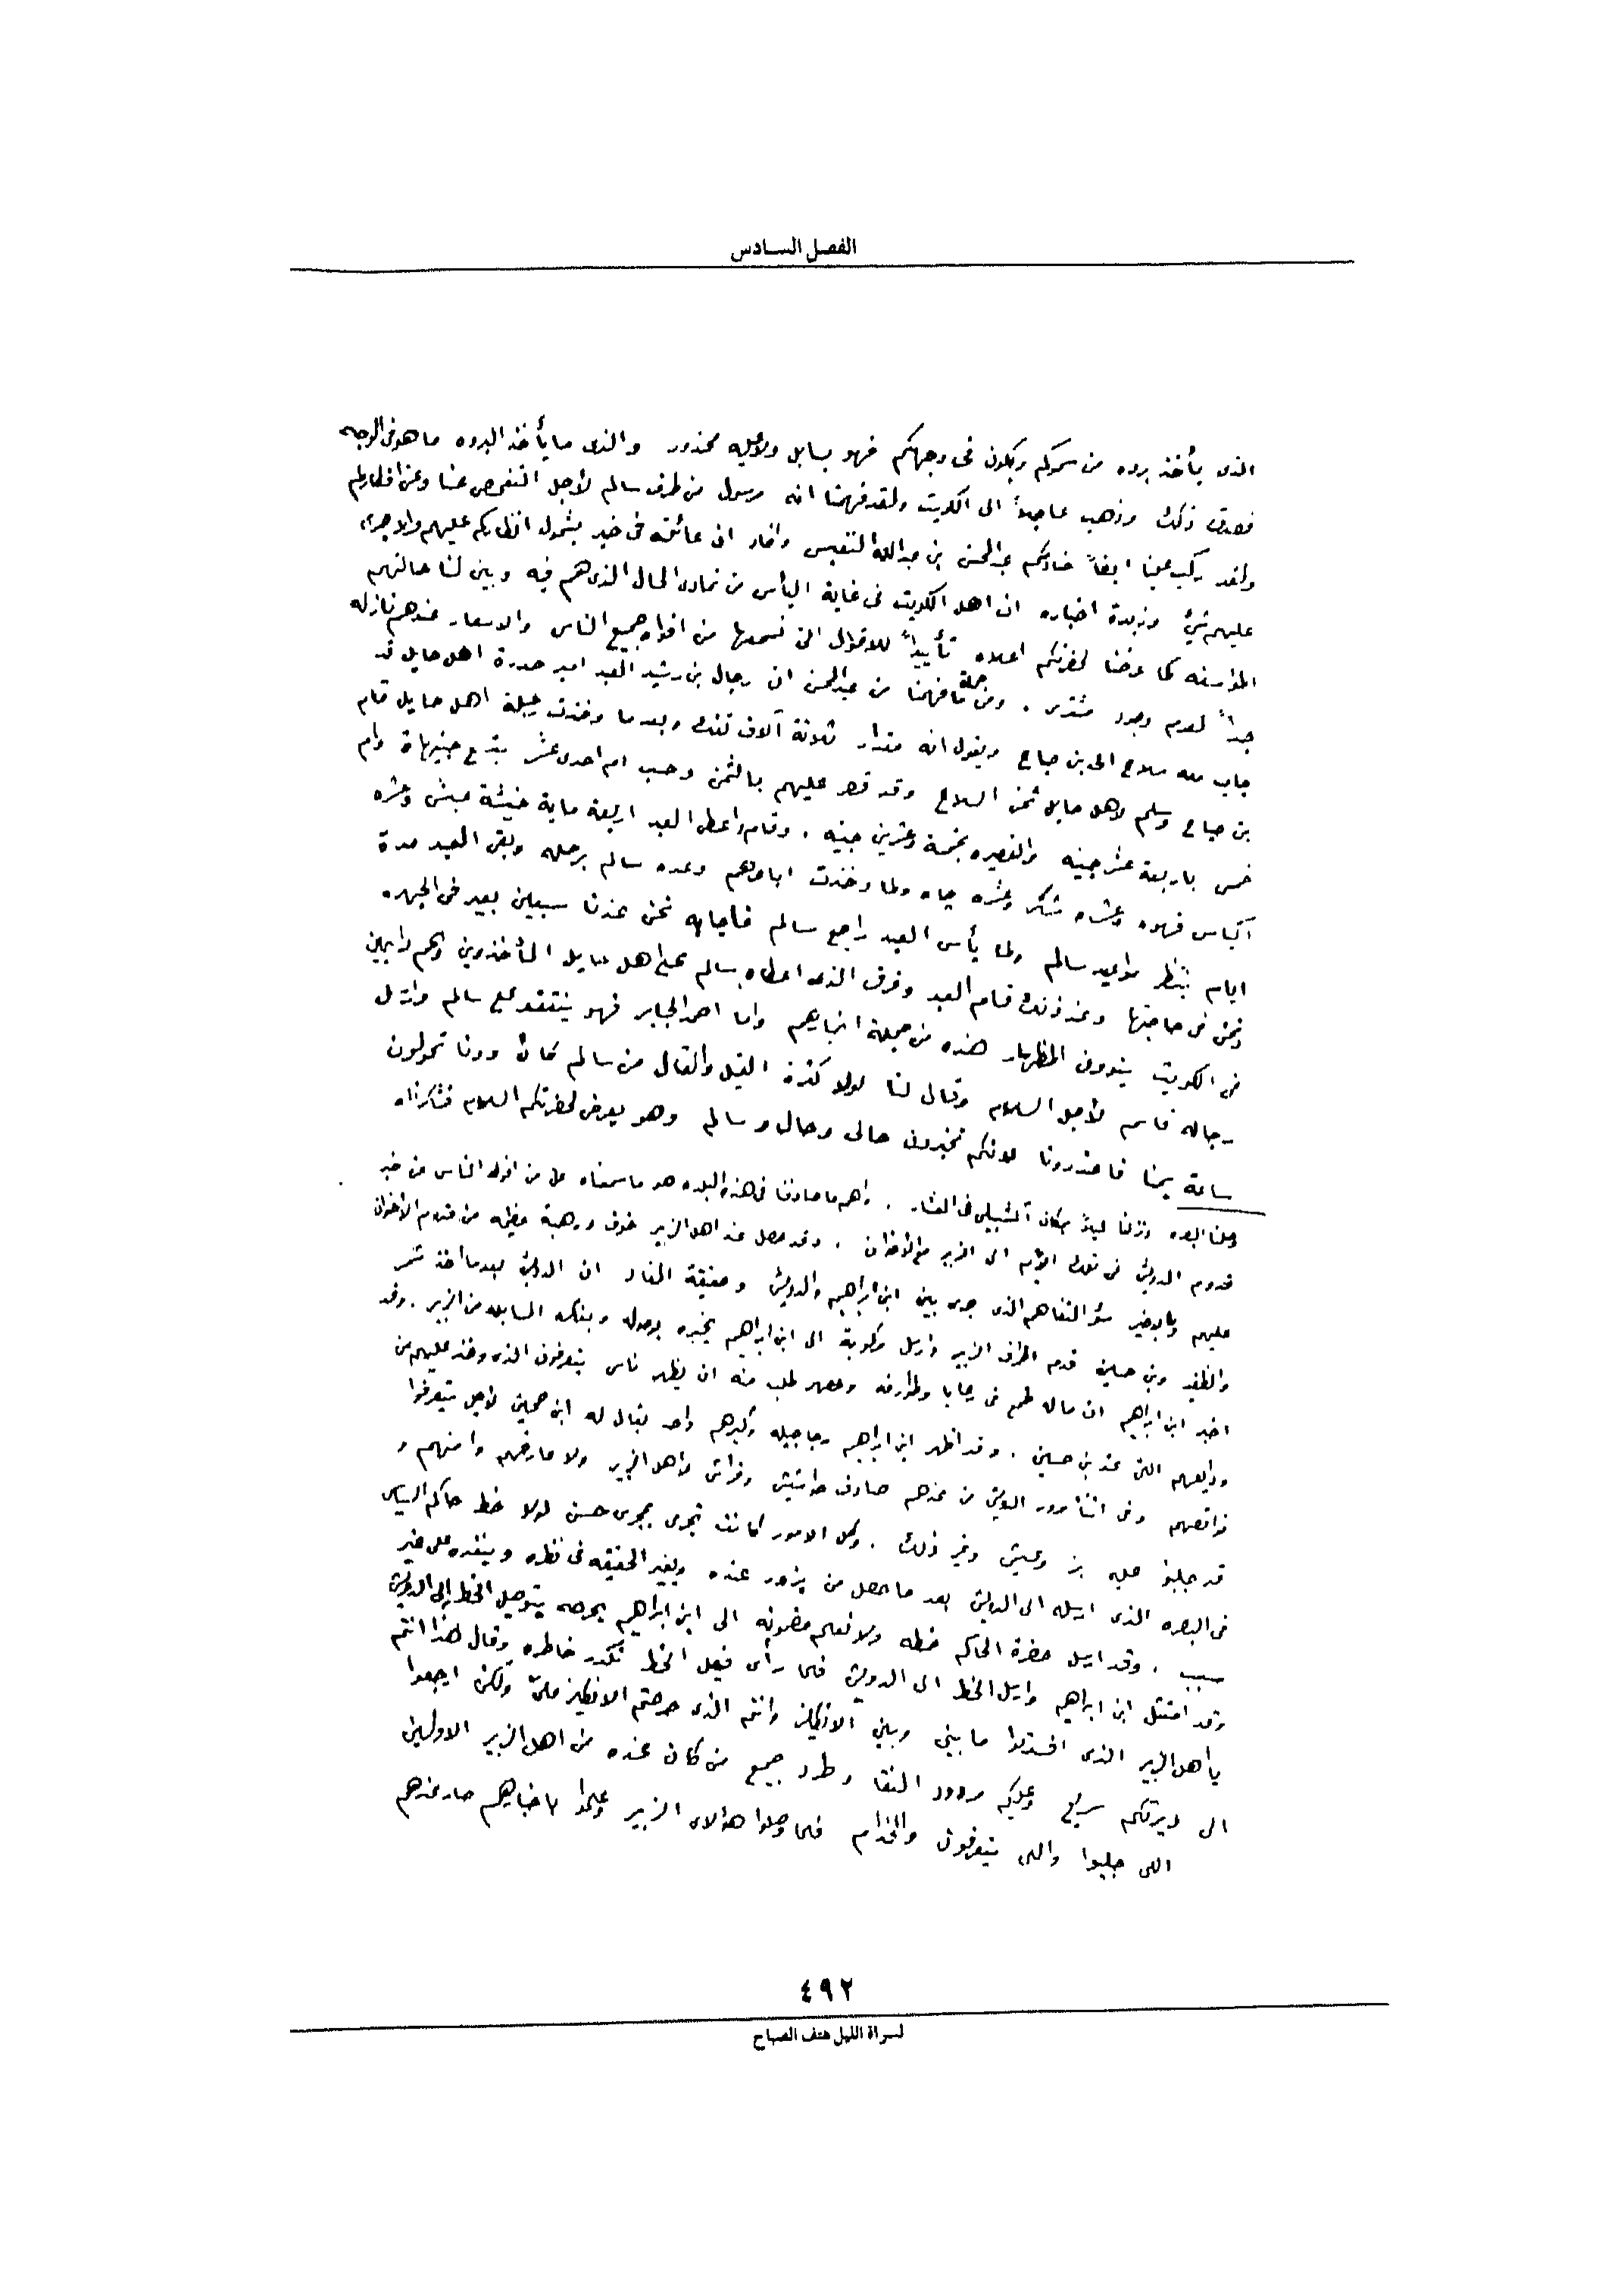 الفصل السادس
الذى يأخذ بروه من سموكم ويكون فى وجهكم فهو يسابل ولا عليه محذور والذى ما يأخذ البروه ما هو فى الوجه
فصدق ذلك وذهب عاجلاً الى الكويت ولقد فهمنا انه مرسول من طرف سالم لأجل التفحص عنا وعن افكاركم
ولقد ركب معنا ايضاً خادمكم عبدالمحسن بن عبدالله النفيس وافاد ان عائلته فى خير بشمول انظاركم عليهم ولا جرى
عليهم شئ وزبدة اخباره ان اهل الكويت فى غاية اليأس من تمادى الحال الذى هم فيه وبين لنا حالتهم
المؤسفه كما عرضنا لحضرتكم اعلاه تأييداً للاقوال التى نسمعها من افواه جميع الناس والاسعار عندهم نازله
جداً لعدم وجود مشترى . ومن جملة ما فهمنا من عبدالمحسن ان رجال بن رشيد العبد امير حدرة اهل حايل قد
جاب معه سلاح الى بن صباح ويقول انه مقدار ثلاثة آلاف تفنك وبعد ما وخذت رحيلة اهل حايل قام
بن صباح وسلم لاهل حايل ثمن السلاح وقد قصر عليهم بالثمن وحسب ام احدى عشر بتسع جنيهات وام
خمس باربعة عشر جنيه والقصيره بخمسة وعشرين جنيه . وقام واعطى العبد اربعة ماية خيشة عيش وعشره
اكياس قهوه وعشره شكر وعشره چاه ولما وخذت اباعرهم وعده سالم برحله وبقى العبد مدة
ايام ينتظر مواعيد سالم ولما يأس العبد راجع سالم فاجابه نحن عندنا سبعين بعير فى الجهره
ونحن فى حاجتها وعند ذلك قام العبد وفرق الذى اعطاه سالم على اهل حايل المأخذوين وهم رابعين
فى الكويت ينوون المظهار هذه من جملة اخبارهم واما احمد الجابر فهو ينتقد على سالم وارسل
رجاله قاسم لأجل السلام وقال لنا لولا كثرة القيل والقال من سالم كان ودنا تحولون
ساعة يمنا فاعذرونا لانكم تخبرون حالى وحال وسالم وهو يعرض لحضرتكم السلام فشكرناه
وصلنا البصره ونزلنا ليلاً بمكان آلشبيلى فى العشار . واهم ما صادفنا فى هذه البلده هو ما سمعناه من افواه الناس من خبر
قدوم الدويش فى تلك الأيام الى الزبير مع الأخوان . وقد حصل عند اهل الزبير خوف ورهبة عظيمه من قدوم الأخوان
عليهم وبالاخير سؤ التفاهم الذى جرى بين ابن ابراهيم والدويش وحقيقة المفاد ان الدويش بعدما اخذ شمر
والظفير وبن حسين قدم اطراف الزبير وارسل مكتوبة الى ابن ابراهيم يخبره بوصوله وبفك المسابله من الزبير . وقد
اخبر ابن ابراهيم ان ماله طمع فى رعايا وطوارفه وعصر طلب منه ان يظهر ناس يتعرفون الذى وخذ عليهم من
ودايعهم التى عند بن حسين . وقد اظهر ابن ابراهيم رجاجيله وكبيرهم واحد يقال له ابن حمين لاجل يتعرفوا
نواقصهم وفى اثنأ مرور الدويش من عندهم صادف حواشيش وفراش لاهل الزبير ولا عارضهم وامنهم و
قد جلبوا عليه بز وعيش وغير ذلك . وكل الامور كانت تجرى بمجرى حسن لولا خط حاكم السياسى
فى البصره الذى ارسله الى الدويش بعد ما حصل من يزور عنده ويغير الحقيقه فى نظره وينقده على غير
سبب . وقد ارسل حضرة الحاكم خطه ولا نعلم مضمونه الى ابن ابراهيم يحرصه بتوصيل الخط الى الدويش
وقد امتثل ابن ابراهيم وارسل الخط الى الدويش فلما رأى فيصل الخط تكدر خاطره وقال لهذا انتم
يا اهل الزبير الذى افسدتوا ما بينى وبين الانكليز وانتم الذى حرضتم الانكليز علىّ ولكن ارجعوا
الى ديرتكم سريع وعليكم مردود النقا وطرد جميع من كان عنده من اهل الزبير الاولين
اللى جلبوا واللى يتعرفون والخدام فلما وصلوا هؤلاى الزبير وعلموا باخبارهم صار عندهم
٤٩٢
لسراة الليل هتف الصباح